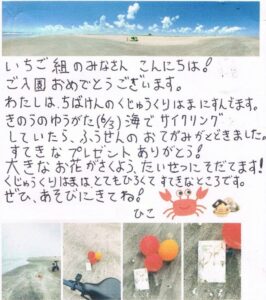 いちご組のみなさん こんにちは!
ご入園おめでとうございます。
わたしは、ちばけんのくじゅうくりはまにすんでます。
きのうのゆうがた(6/3)海でサイクリング
していたら、ふうせんのおてがみがとどきました。
すてきなプレゼントありがとう!
大きなお花がさくよう、たいせつにそだてます!
くじゅうくりはまは、とてもひろくてすてきなところです。
ぜひ、あそびにきてね!
ひこ